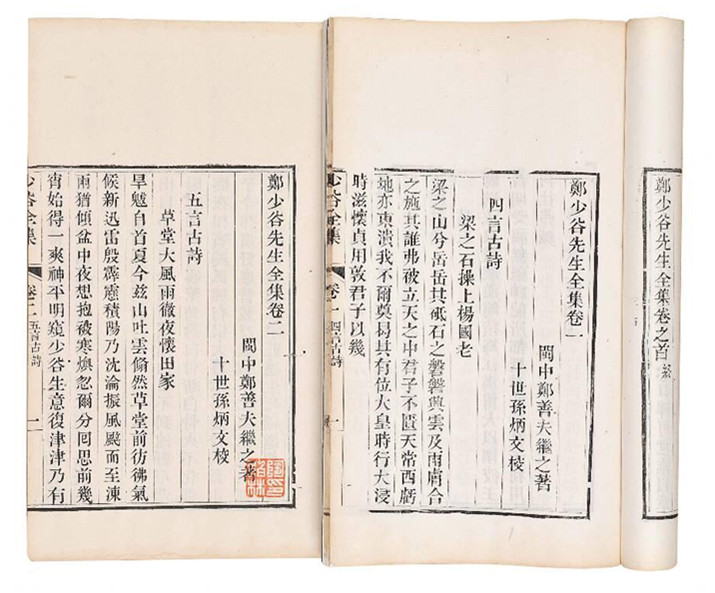 鄭少谷先生全集卷之首
鄭少谷先生全集卷一
閩中鄭善夫繼之著
十世孫炳文棱
四言古詩
梁之石操上楊國老
梁之山兮岳岳其砥石之磐磐興雲及雨膚合
之施其誰弗被立天之中君子不匱天常西虧
地亦東潰我不爾奠曷其有位大皇時行大浸
時滋懷貞用敦君子以幾
少谷全集
卷一
四言古詩
一
鄭少谷先生全集卷二
閩中鄭善夫繼之著
十世孫炳文棱
五言古詩
草堂大風雨徹夜懷田家
旱魃自首夏今茲山吐雲翛然草堂前彷彿氣
候新迅雷殷霹靂積陽乃沈淪振風飈而至涷
雨猶傾盆中夜想抱被寒燠忽爾分囘思前幾
宵始得一爽神平明窺少谷生意復津津乃有
少谷全集
卷二
五言古詩
一